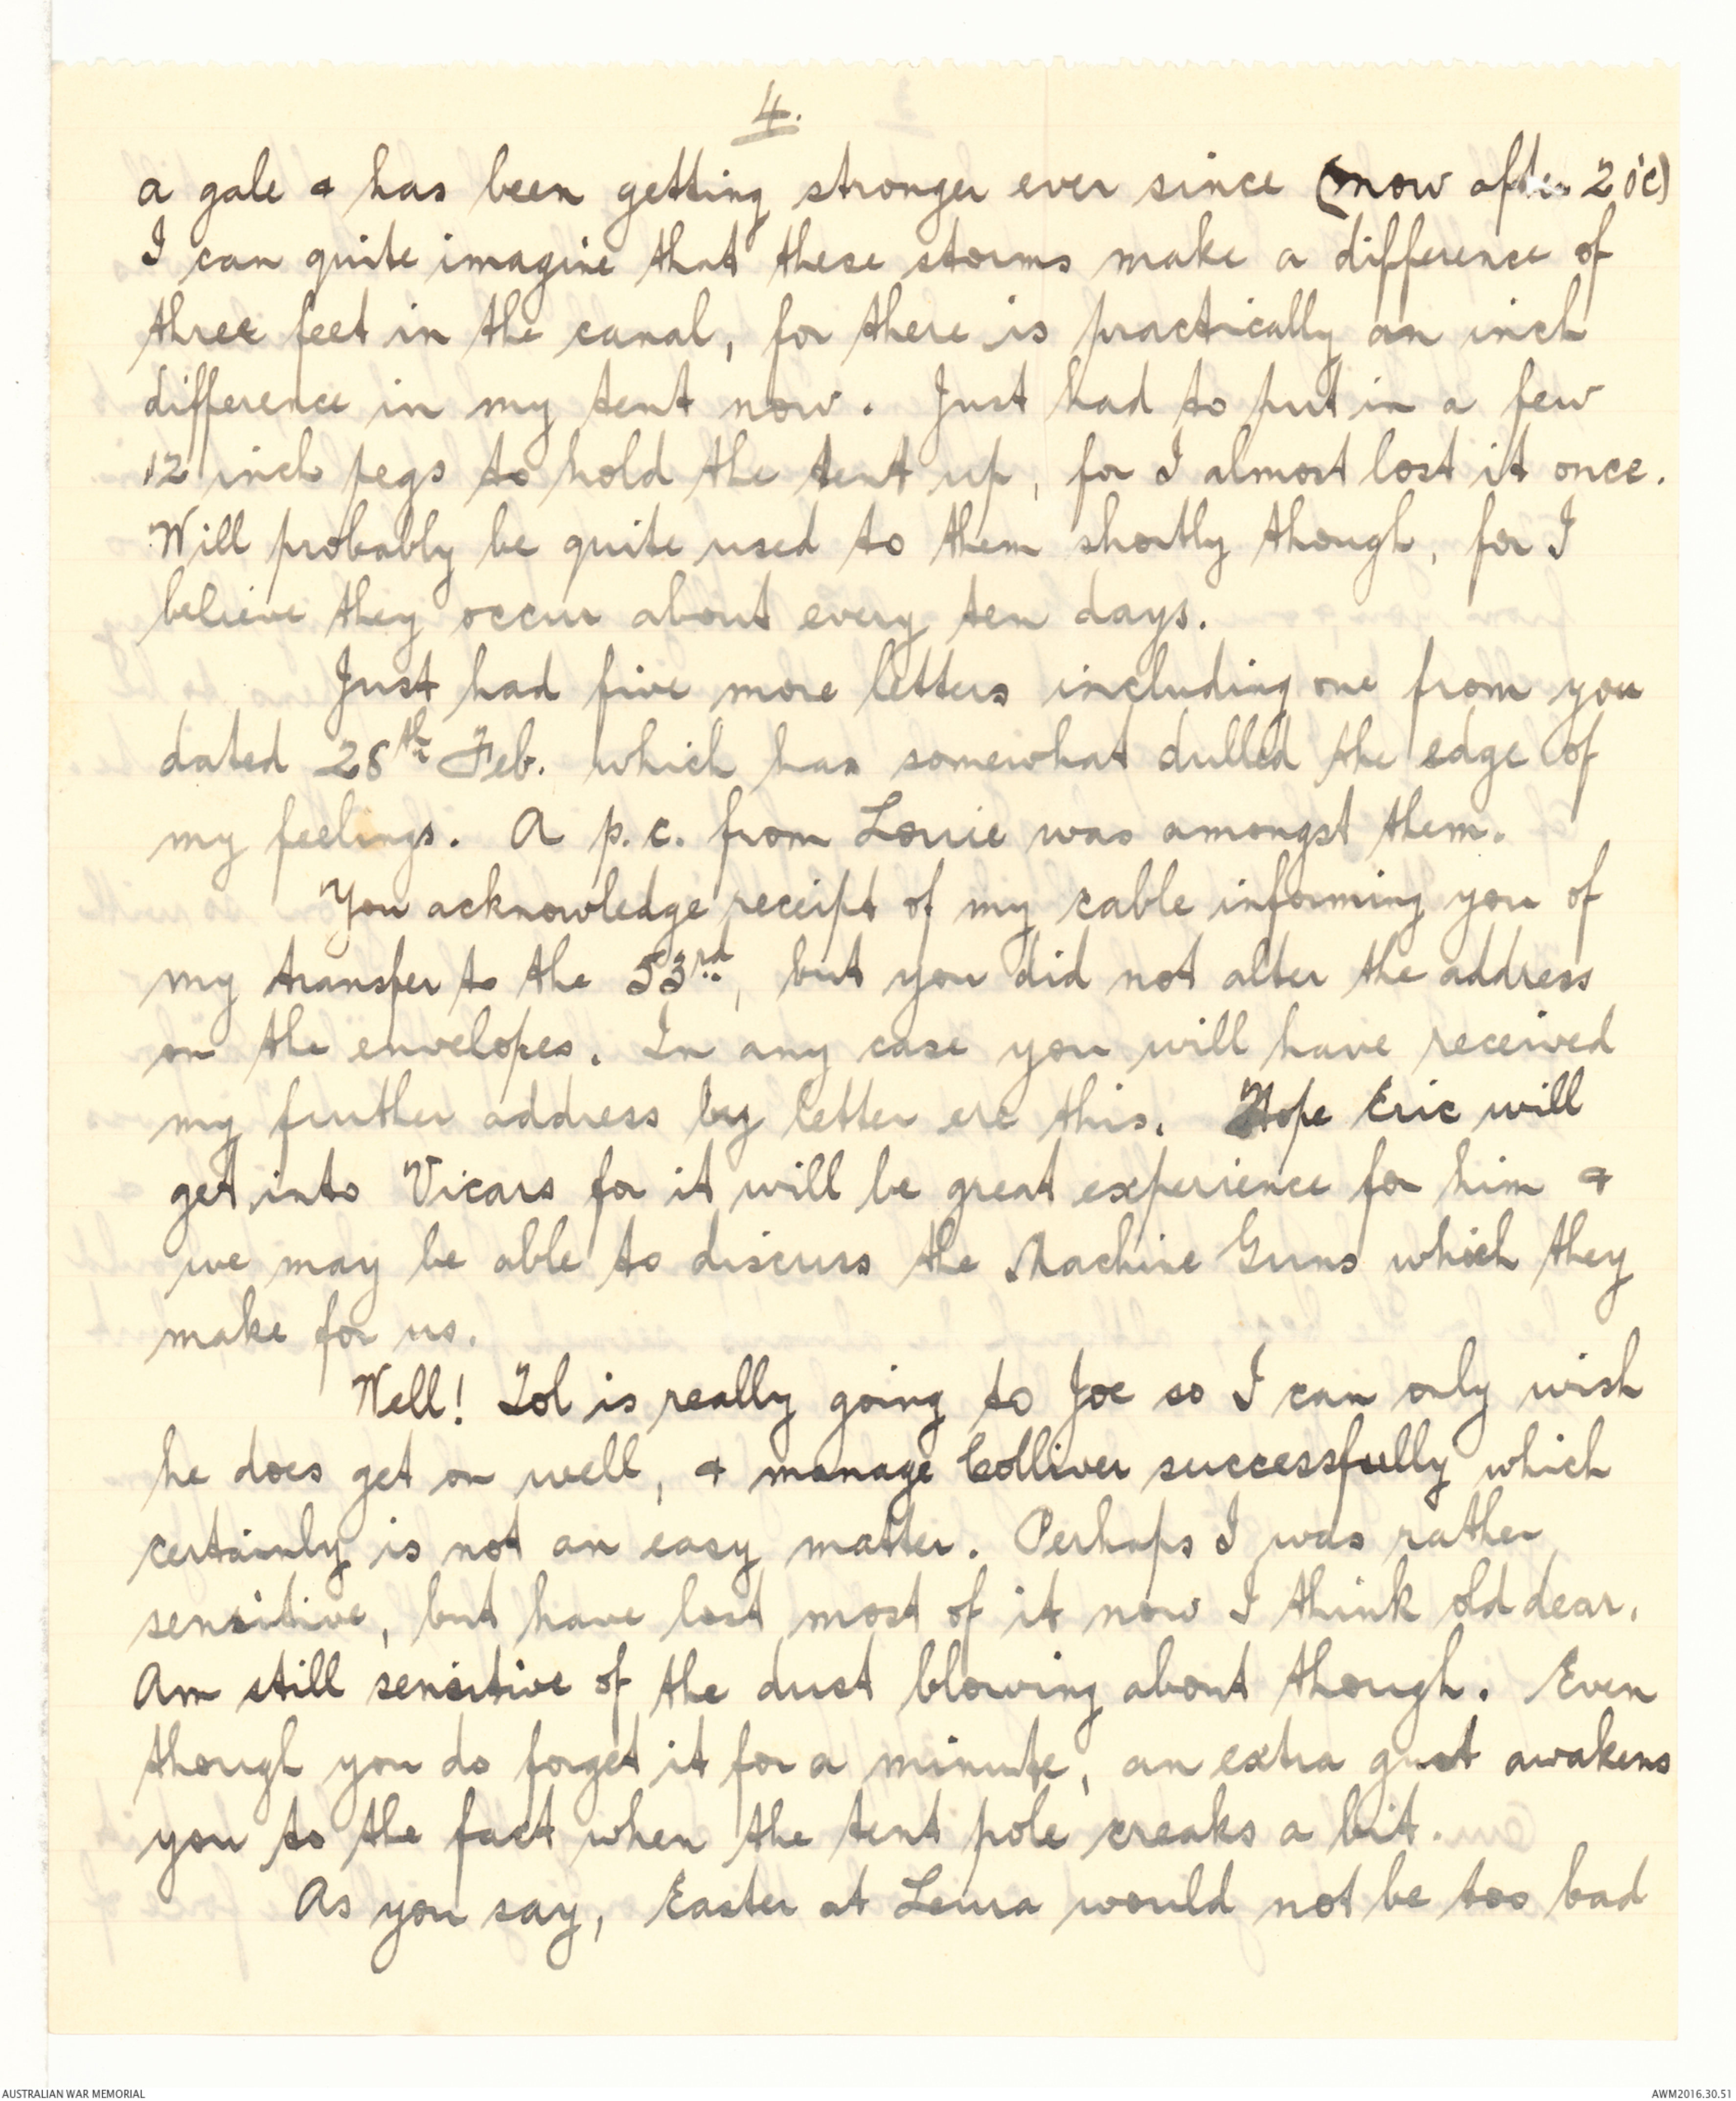 4.
a gale & has been getting stronger ever since (now after 2 o'c)
I can quite imagine that these storms make a difference of
three feet in the canal, for there is practically an inch
difference in my tent now. Just had to put in a few
12 inch pegs to hold the tent up, for I almost lost it once.
Will probably be quite used to them shortly though, for I
believe they occur about every ten days.
Just had five more letters including one from you
dated 28th Feb. which has somewhat dulled the edge of
my feelings. A p.c. from Louie was amongst them.
You acknowledge receipt of my cable informing you of
my transfer to the 53rd, but you did not alter the address
on the envelopes. In any case you will have received
my further address by letter ere this. Hope Eric will
get into Vicars for it will be great experience for him &
we may be able to discuss the Machine Guns which they
make for us.
Well! Tol is really going to Joe so I can only wish
he does get on well, & manage Colliver successfully which
certainly is not an easy matter. Perhaps I was rather
sensitive, but have lost most of it now I think old dear.
Am still sensitive of the dust blowing about though. Even
though you do forget it for a minute, an extra gust awakens
you to the fact when the tent pole creaks a bit.
As you say, Easter at Leura would not be too bad
AUSTRALIAN WAR MEMORIAL
AWM2016.30.51